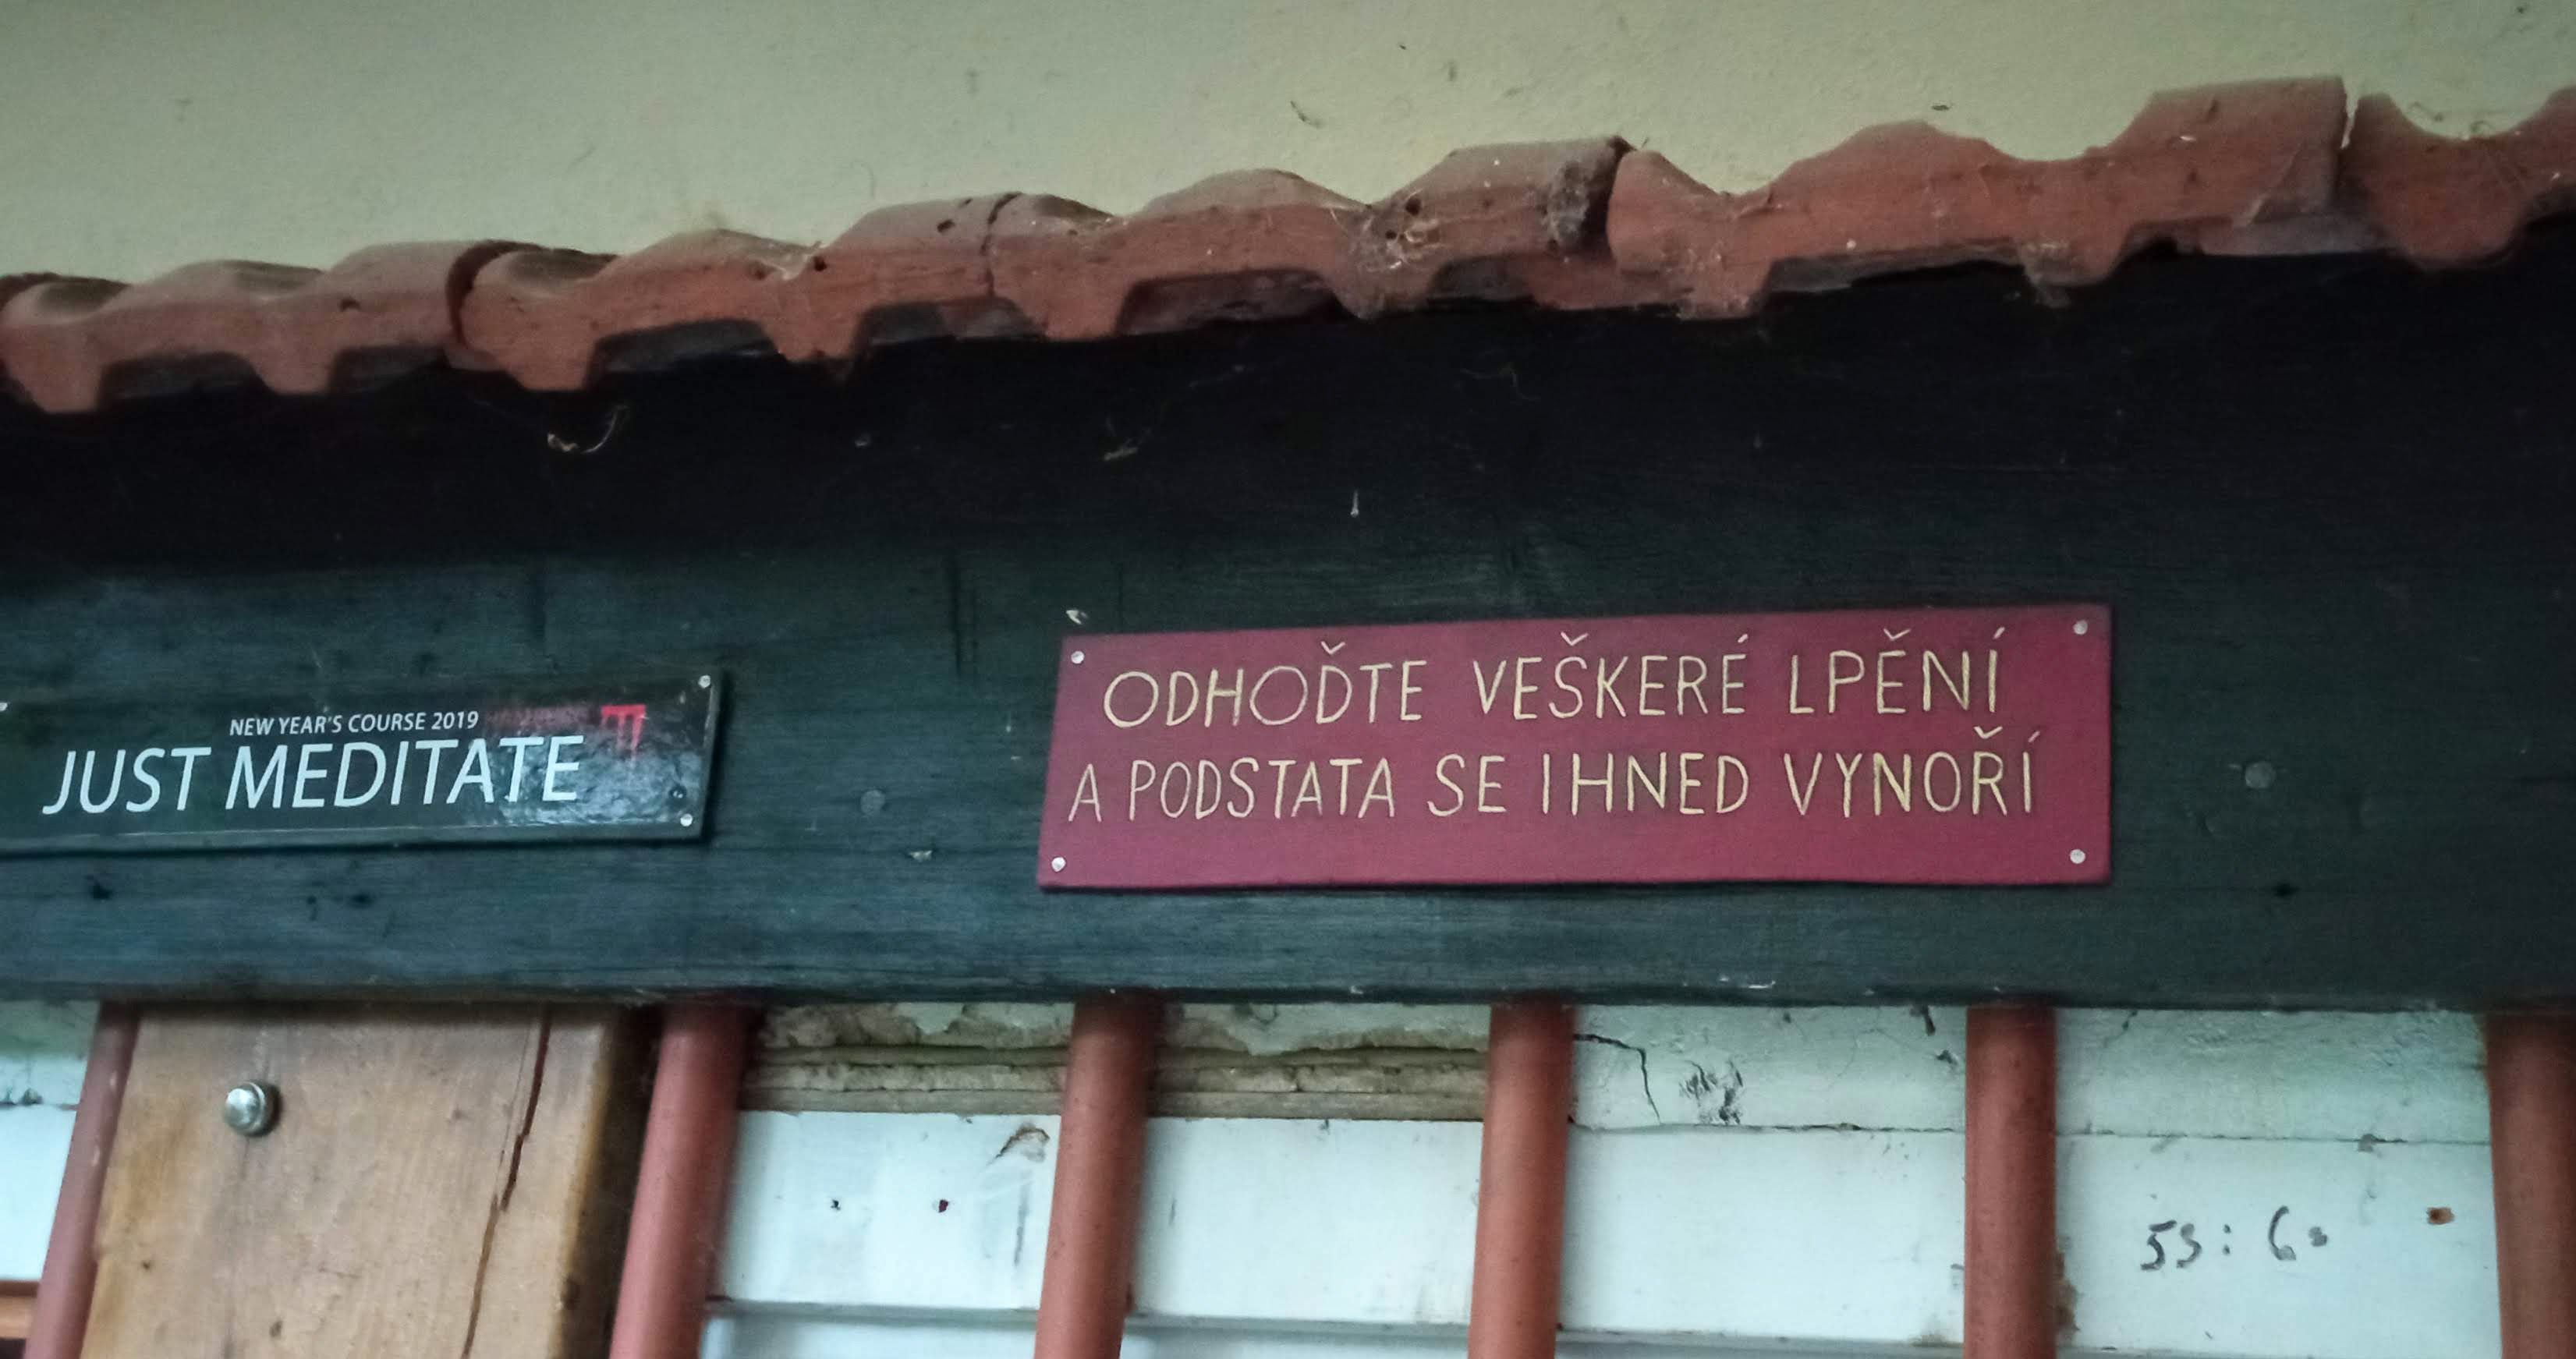 NEW YEAR'S COURSE 2019
JUST MEDITATE
ODHOĎTE VEŠKERÉ LPĚNÍ
A PODSTATA SE IHNED VYNOŘÍ